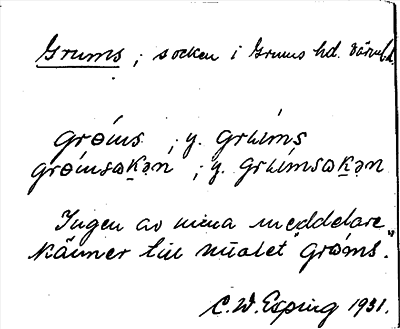 Grums ; socken i Grums hd. Värml.
grɵ́ms ; y. grʉ́ms
grɵ́msɷḵən ; y. grʉ́msɷḵən
Ingen av mina meddelare
känner till uttalet "grøms".
C. W. Esping 1931.